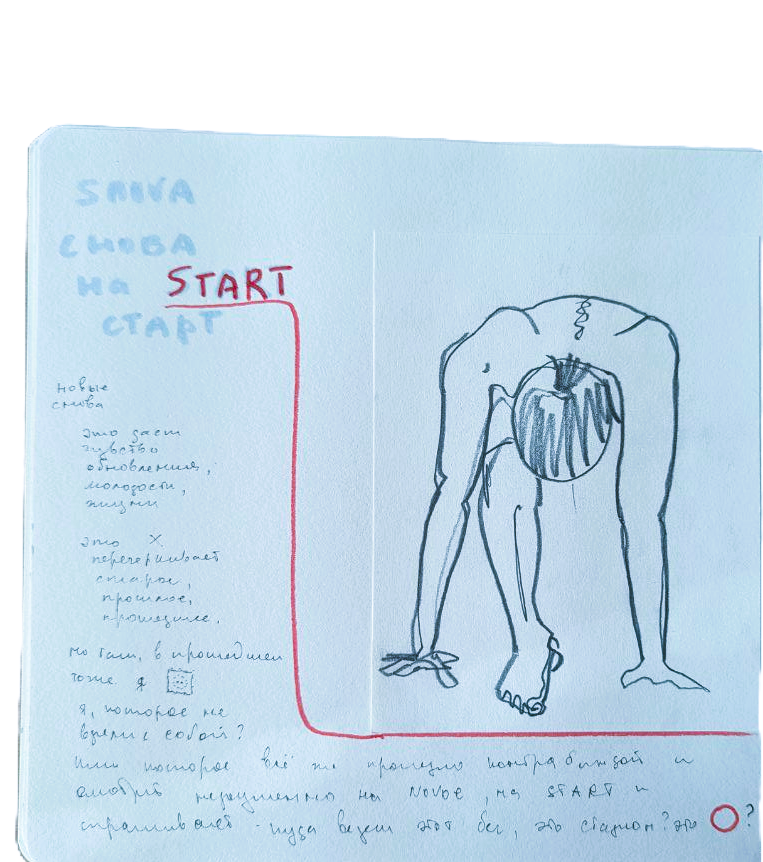 SNOVA
СНОВА
на START
СТАРТ
новые
снова
это даст
чувство
обновления,
молодости,
жизни
это X
перечеркивает
старое,
прошлое,
прошедшее.
но там, в прошедшем
тоже я
я, которое не
взяли с собой?
или которое всё же пролезло контрабандой и
смотрит на NOVOE, на START и
спрашивает - куда ведет этот бег, это стадион? это O?